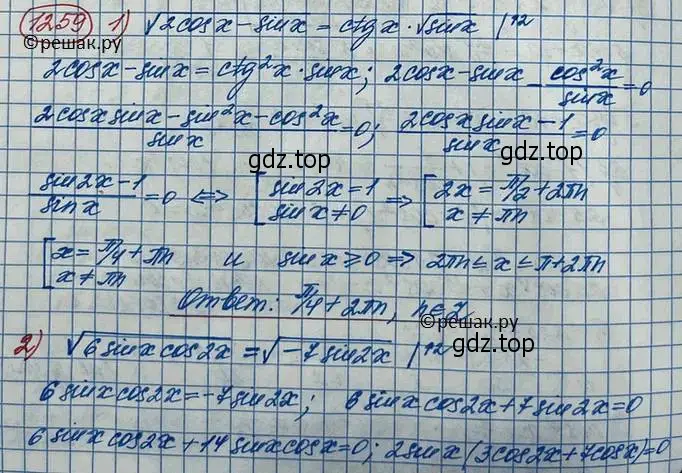 1259 1) √2cosx-sinx = ctgx·√sinx |^2
©решак.ру
2cosx-sinx=ctg²x·sinx; 2cosx-sinx-cos²x/sinx=0
(2cosxsinx-sin²x-cos²x)/sinx=0; (2cosxsinx-1)/sinx=0
gdz.top gdz.top
(sin2x-1)/sinx=0 <=> [sin2x=1 => [2x=π/2+2πn
[sinx≠0 [x≠πn
[x=π/4+πn и sinx≥0 => 2πn≤x≤π+2πn
[x≠πn
Ответ: π/4+2πn, n∈Z
©решак.ру gdz.top
2) √6sinxcos2x=√-7sin2x |^2
6sinxcos2x=-7sin2x; 6sinxcos2x+7sin2x=0
6sinxcos2x+14sinxcosx=0; 2sinx(3cos2x+7cosx)=0
gdz.top gdz.top